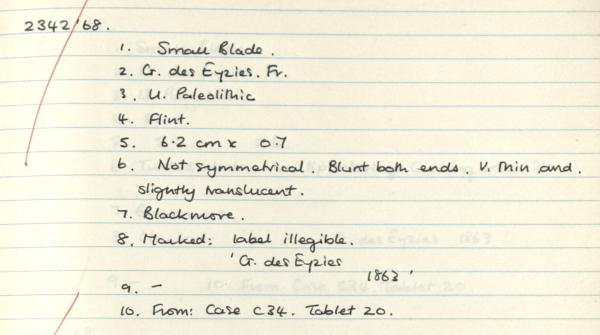 2342/'68.
1. Small Blade.
2. G. des Eyzies. Fr.
3. U. Paleolithic
4. Flint.
5. 6.2 cm x 0.7
6. Not symmetrical. Blunt both ends. V. thin and.
slightly translucent.
7. Blackmore.
8. Marked: label illegible.
'G. des Eyzies
1863'
9. -
10. From: Case C34. Tablet 20.